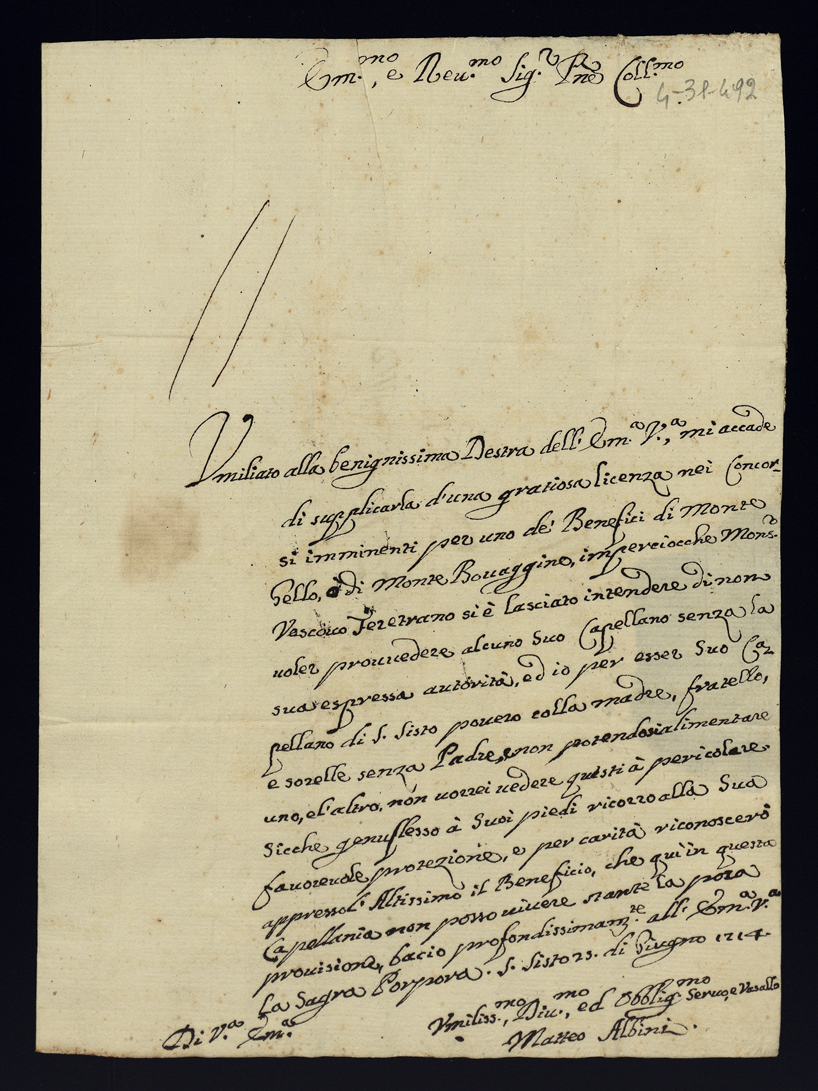 Em.mo, e Reu.mo Sig.r Pne Coll.mo
4-31-492
Vmiliato alla benignissima Destra dell' Em.a V.a, mi accade
di supplicarla d'una gratiosa licenza nei Concor-
si imminenti per uno de' Benefici di Monte
Gello, ò di Monte Rouaggine, imperciocche Mons.r
Vescouo Feretrano si è lasciato intendere di non
uoler prouuedere alcuno Suo Capellano senza la
sua espressa autorità, ed io per esser Suo Ca-
pellano di S. Sisto pouero colla madre, fratello,
e sorelle senza Padre, e non potendosi alimentare
uno, e l'altro, non uorrei uedere questi à pericolare
Sicche genuflesso à Suoi piedi ricorro alla Sua
fauoreuole protezione, e per carità riconoscerò
appresso l'Altissimo il Beneficio, che qui in questa
Capellania non posso uiuere stante la poca
prouisione, bacio profondissimam.te all' Em.a V.a
La Sagra Porpora. S. Sisto 25. di Giugno 1714.
Di V.a Em.a
Vmiliss.mo, Diu.mo, ed Obblig.mo Seruo, e Vasallo
Matteo Albini.